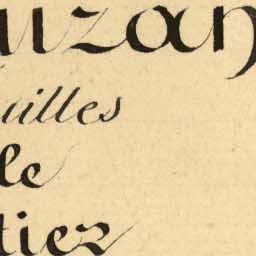 uzan
uilles
le
tiez